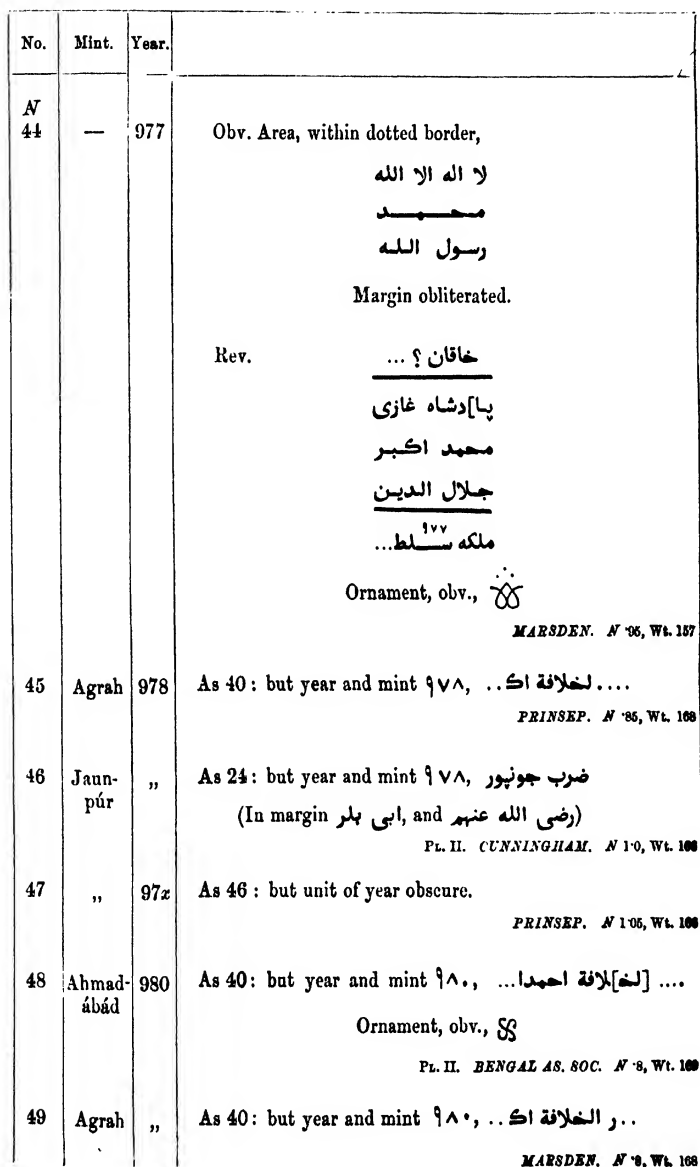 No. Mint. Year.
N
44 — 977 Obv. Area, within dotted border,
لا اله الا الله
محمد
رسول الله
Margin obliterated.
Rev. خاقان ؟ ...
پا]دشاه غازى
محمد اكبر
جلال الدين
٩٧٧
ملكه سلط...
Ornament, obv.,
MARSDEN. N ·95, Wt. 157
45 Agrah 978 As 40: but year and mint ٩٧٨, ....لخلافة اك..
PRINSEP. N ·85, Wt. 168
46 Jaun- „ As 24: but year and mint ٩٧٨, ضرب جونپور
púr (In margin ابى بلر, and رضى الله عنهم)
PL. II. CUNNINGHAM. N 1·0, Wt.
47 „ 97x As 46: but unit of year obscure.
PRINSEP. N 1·05, Wt.
48 Ahmad- 980 As 40: but year and mint ٩٨٠, .... [لخ]لافة احمدا...
ábád Ornament, obv.,
PL. II. BENGAL AS. SOC. N ·8, Wt.
49 Agrah „ As 40: but year and mint ٩٨٠, ..ر الخلافة اك..
MARSDEN. N Wt. 168